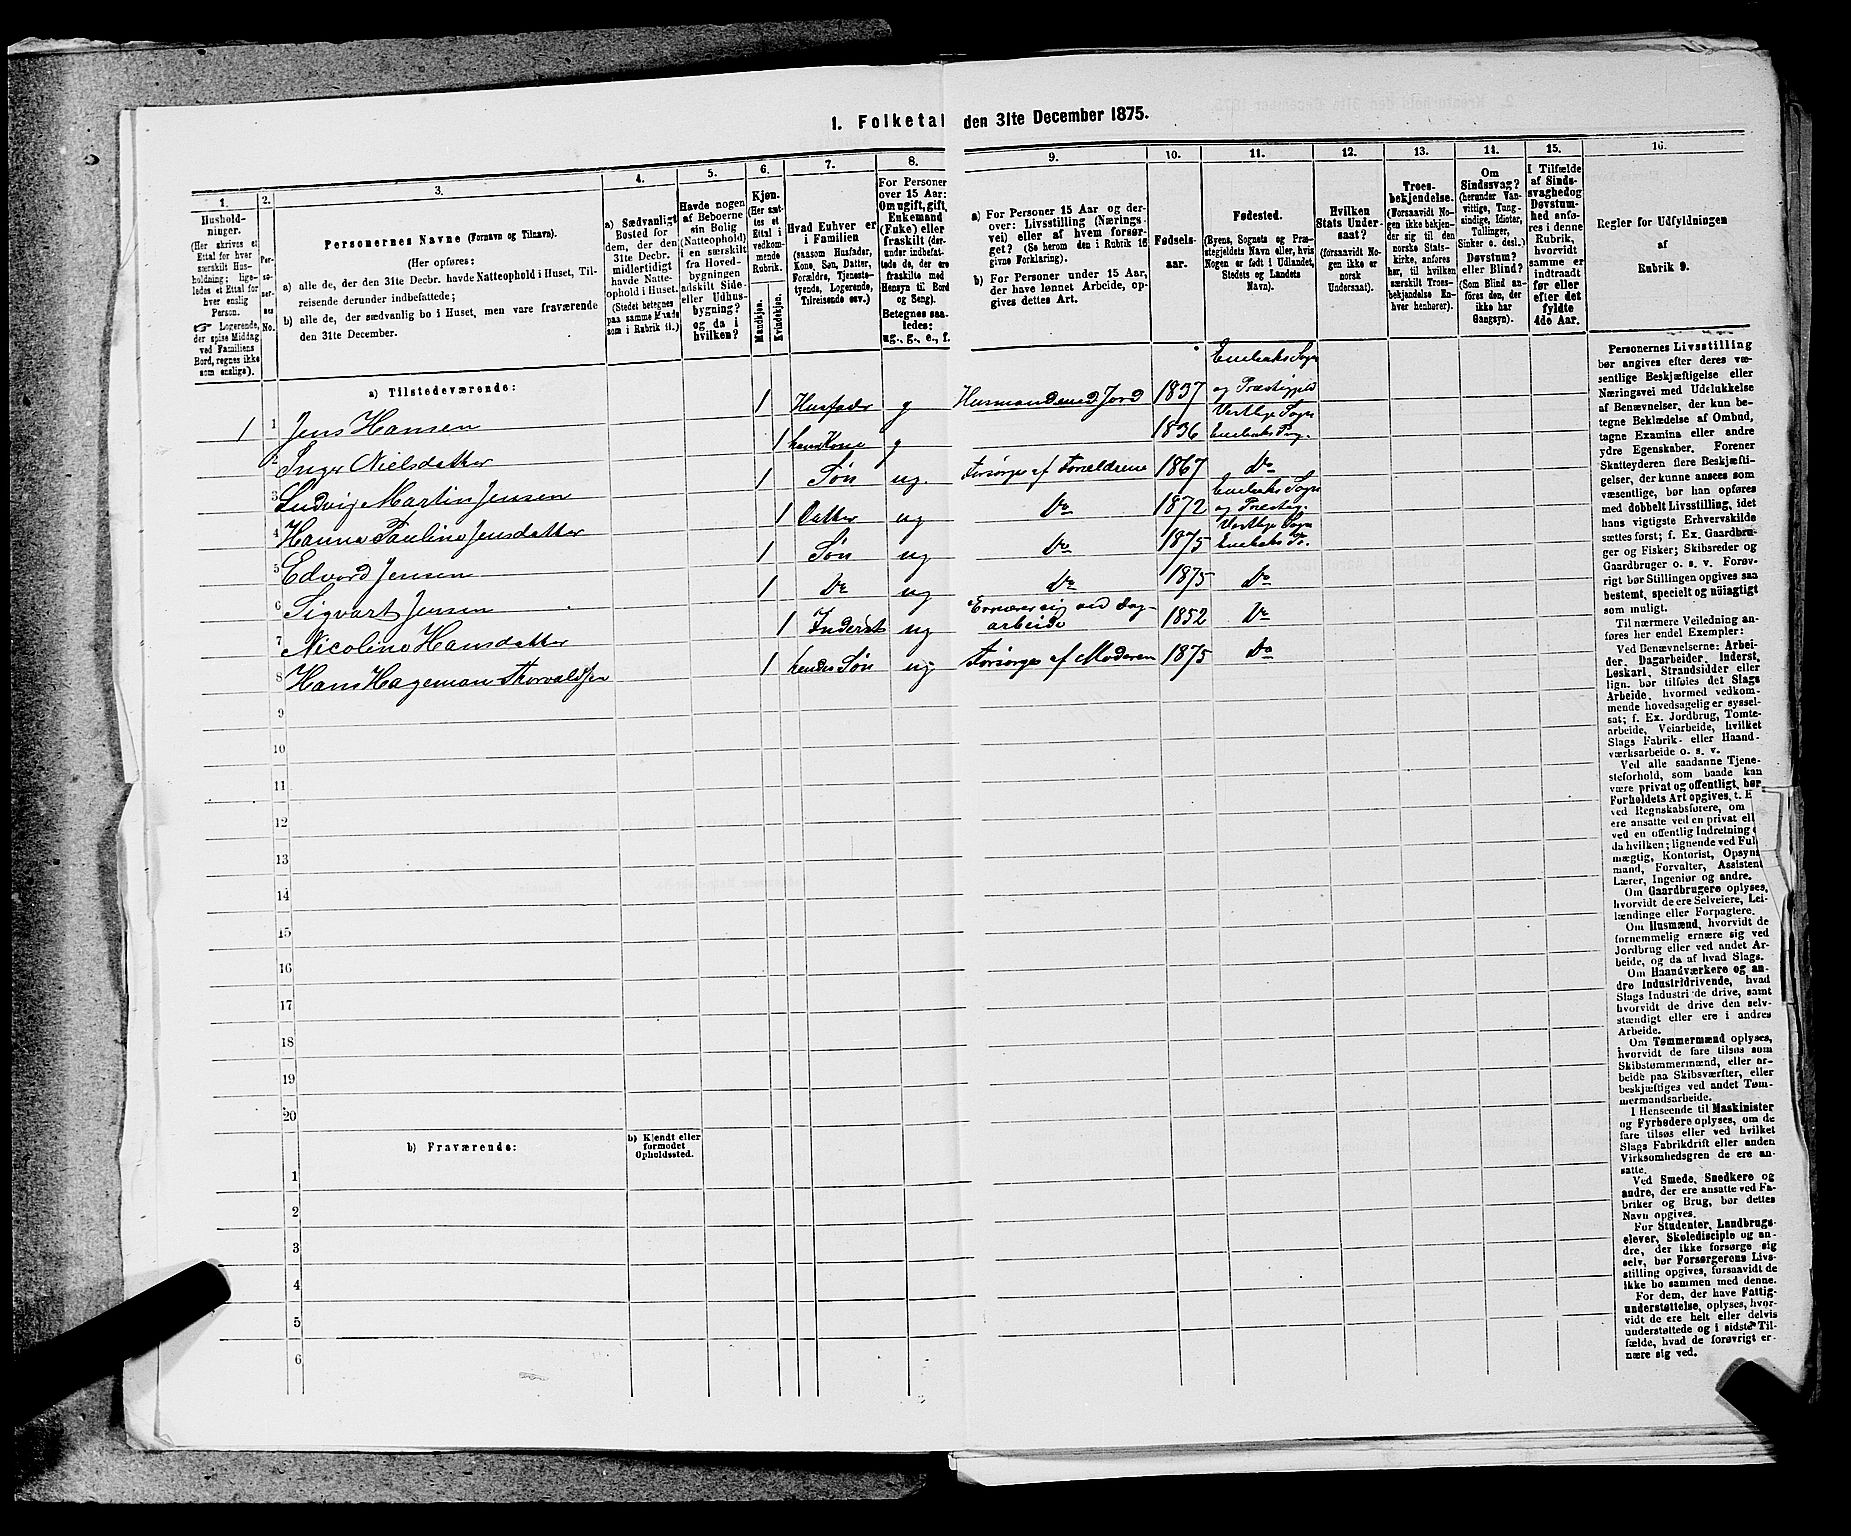 1. Folketal den 31te December 1875.
1. 2. 3. 4. 5. 6. 7. 8. 9. 10. 11. 12. 13. 14. 15. 16.
Hushold-
ninger.
(Her skrives et
Ettal for hver
særskilt Hus-
holdning; lige-
ledes et Ettal for
hver enslig
Person.
☞ Logerende,
der spise Middag
ved Familiens
Bord, regnes ikke
som enslige).
Per-
so-
ner-
nes
No.
Personernes Navne (Fornavn og Tilnavn).
(Her opføres:
a) alle de, der den 31te Decbr. havde Natteophold i Huset, Til-
reisende derunder indbefattede;
b) alle de, der sædvanlig bo i Huset, men vare fraværende
den 31te December.
a) Sædvanligt
Bosted for
dem, der den
31te Decbr.
midlertidigt
havde Natte-
ophold i Huset.
(Stedet betegnes
paa samme Maade
som i Rubrik 11.)
Havde nogen
af Beboerne
sin Bolig
(Natteophold)
i en særskilt
fra Hoved-
bygningen
adskilt Side-
eller Udhus-
bygning?
og da i
hvilken?
Kjøn.
(Her sæt-
tes et
Ettal i
vedkom-
mende
Rubrik.
Mandkjøn.
Kvindekjøn.
Hvad Enhver er
i Familien
(saasom Husfader,
Kone, Søn, Datter,
Forældre, Tjeneste-
tyende, Logerende,
Tilreisende osv.)
For Personer
over 15 Aar:
Om ugift, gift,
Enkemand
(Enke) eller
fraskilt (der-
under indbefat-
tede de, der ere
fraskilte med
Hensyn til Bord
og Seng).
Betegnes saa-
ledes:
ug., g., e., f.
a) For Personer 15 Aar og der-
over: Livsstilling (Nærings-
vei) eller af hvem forsør-
get? (Se herom den i Rubrik 16
givne Forklaring).
b) For Personer under 15 Aar,
der have lønnet Arbeide, op-
gives dettes Art.
Fødsels-
aar.
Fødested.
(Byens, Sognets og Præ-
stegjeldets Navn eller, hvis
Nogen er født i Udlandet,
Stedets og Landets
Navn).
Hvilken
Stats Under-
saat?
(forsaavidt No-
gen ikke er
norsk
Undersaat).
Troes-
bekjendelse.
(Forsaavidt No-
gen ikke bekjen-
der sig til den
norske Stats-
kirke, anføres
her, til hvilken
særskilt Troes-
bekjendelse En-
hver henhører).
Om
Sindssvag?
(herunder Van-
vittige, Tung-
sindige, Idioter,
Tullinger,
Sinker o. desl.)
Døvstum?
eller Blind?
(Som Blind an-
føres den, der
ikke har
Gangsyn).
I Tilfælde
af Sinds-
svaghed og
Døvstum-
hed anfø-
res i denne
Rubrik,
hvorvidt
samme er
indtraadt
før eller
efter det
fyldte
4de Aar.
Regler for Udfyldningen
af
Rubrik 9.
a) Tilstedeværende:
1 1 Jens Hansen 1 Husfader g Husmand med Jord 1837 Enebaks Sogn og Præstegjeld
2 Inger Nielsdatter 1 hans Kone g 1836 Vestbye Sogn Enebaks
3 Ludvig Martin Jensen 1 Søn ug. Forsørges af Forældrene 1867 Do
4 Hanna Pauline Jensdatter 1 Datter ug Do 1872 Enebaks Sogn og Præsteg.
5 Edvard Jensen 1 Søn ug Do 1875 Vestbye Sogn Enebaks
6 Sigvart Jensen 1 Do ug Do 1875 Do
7 Nicoline Hansdatter 1 Inderst ug Ernærer sig ved Dag-
arbeide 1852 Do
8 Hans Hageman Thorvaldsen 1 hendes Søn ug. Forsørges af Moderen 1875 Do
9
10
11
12
13
14
15
16
17
18
19
20
b) Fraværende:
b) Kjendt eller
formodet
Opholdssted.
1
2
3
4
5
6
Personernes Livsstilling
bør angives efter deres væ-
sentlige Beskjæftigelse eller
Næringsvei med Udelukkelse
af Benævnelser, der kun be-
tegne Beklædelse af Ombud,
tagne Examina eller andre
ydre Egenskaber. Forener
Skatteyderen flere Beskjæfti-
gelser, der kunne ansees som
væsentlige, bør han opføres
med dobbelt Livsstilling, idet
hans vigtigste Erhvervskilde
sættes først; f. Ex. Gaardbru-
ger og Fisker; Skibsreder og
Gaardbruger o. s. v. Forøv-
rigt bør Stillingen opgives saa
bestemt, specielt og nøiagtigt
som muligt.
Til nærmere Veiledning an-
føres her endel Exempler:
Ved Benævnelserne: Arbei-
der, Dagarbeider, Inderst,
Løskarl, Strandsidder eller
lign. bør tilføies det Slags
Arbeide, hvormed vedkom-
mende hovedsagelig er syssel-
sat; f. Ex. Jordbrug, Tomte-
arbeide, Veiarbeide, hvilket
Slags Fabrik- eller Haand-
værksarbeide o. s. v.
Ved alle saadanne Tjene-
steforhold, som baade kan
være privat og offentligt, bør
Forholdets Art opgives, t. E
ved Regnskabsførere, om
ere ansatte ved en privat ell
ved en offentlig Indretning
da hvilken; lignende ved Ful
mægtig, Kontorist, Opsyns
mand, Forvalter, Assistent
Lærer, Ingeniør og andre.
Om Gaardbrugere oplyses,
hvorvidt de ere Selveiere, Lei-
lændinge eller Forpagtere.
Om Husmænd, hvorvidt de
fornemmelig ernære sig ved
Jordbrug eller ved andet Ar-
beide, og da af hvad Slags.
Om Haandværkere og an-
dre Industridrivende, hvad
Slags Industri de drive, samt
hvorvidt de drive den selv-
stændigt eller ere i andres
Arbeide.
Om Tømmermænd oplyses,
hvorvidt de fare tilsøs som
Skibstømmermænd, eller ar-
beide paa Skibsværfter, eller
beskjæftiges ved andet Tøm-
mermandsarbeide.
I Henseende til Maskinister
og Fyrbødere oplyses, om de
fare tilsøs eller ved hvilket
Slags Fabrikdrift eller anden
Virksomhedsgren de ere an-
satte.
Ved Smede, Snedkere og
andre, der ere ansatte ved Fa-
briker og Brug, bør dettes
Navn opgives.
For Studenter, Landbrugs-
elever, Skoledisciple og an-
dre, der ikke forsørge sig
selv, bør Forsørgerens Livs-
stilling opgives, forsaavidt de
ikke bo sammen med denne.
For dem, der have Fattig-
understøttelse, oplyses, hvor-
vidt de ere helt eller delvis
understøttede og i sidste Til-
fælde, hvad de forøvrigt er-
nære sig ved.